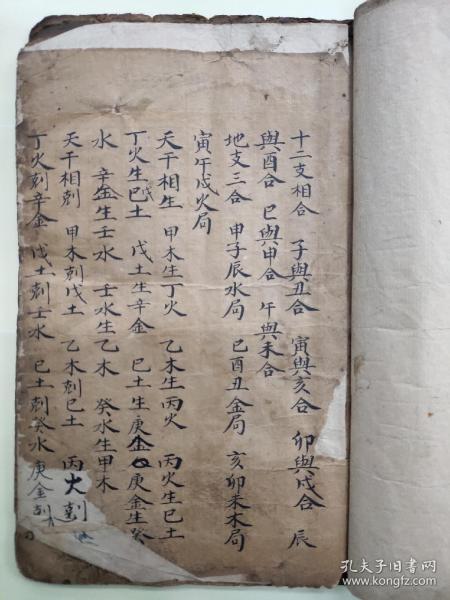 十二支相合 子與丑合 寅與亥合 卯與戌合 辰
與酉合 巳與申合 午與未合
地支三合 申子辰水局 巳酉丑金局 亥卯未木局
寅午戌火局
天干相生 甲木生丁火 乙木生丙火 丙火生巳土
丁火生巳戊土 戊土生辛金 巳土生庚金 庚金生癸
水 辛金生壬水 壬水生乙木 癸水生甲木
天干相剋 甲木剋戊土 乙木剋巳土 丙火剋
丁火剋辛金 戊土剋壬水 巳土剋癸水 庚金剋
孔夫子旧书网
www.kongfz.com